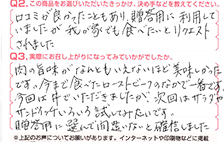 Q2.この商品をお選びいただいたきっかけ、決め手などを教えてください。
口コミが良かったこともあり、贈答用に利用して
いましたが我が家でも食べたいとリクエスト
されました
Q3.実際にお召し上がりになってみていかがでしたか。
肉の旨味がなんともいえないほど美味しかった
です。今まで食べたローストビーフのなかで一番です。
今回は丼でいただきましたが、次回はサラダや
サンドイッチいろいろ試してみたいです。
贈答用に選んで間違いないと確信しました
※上記のお声についてお願いがあります。インターネットや印刷物などに掲載